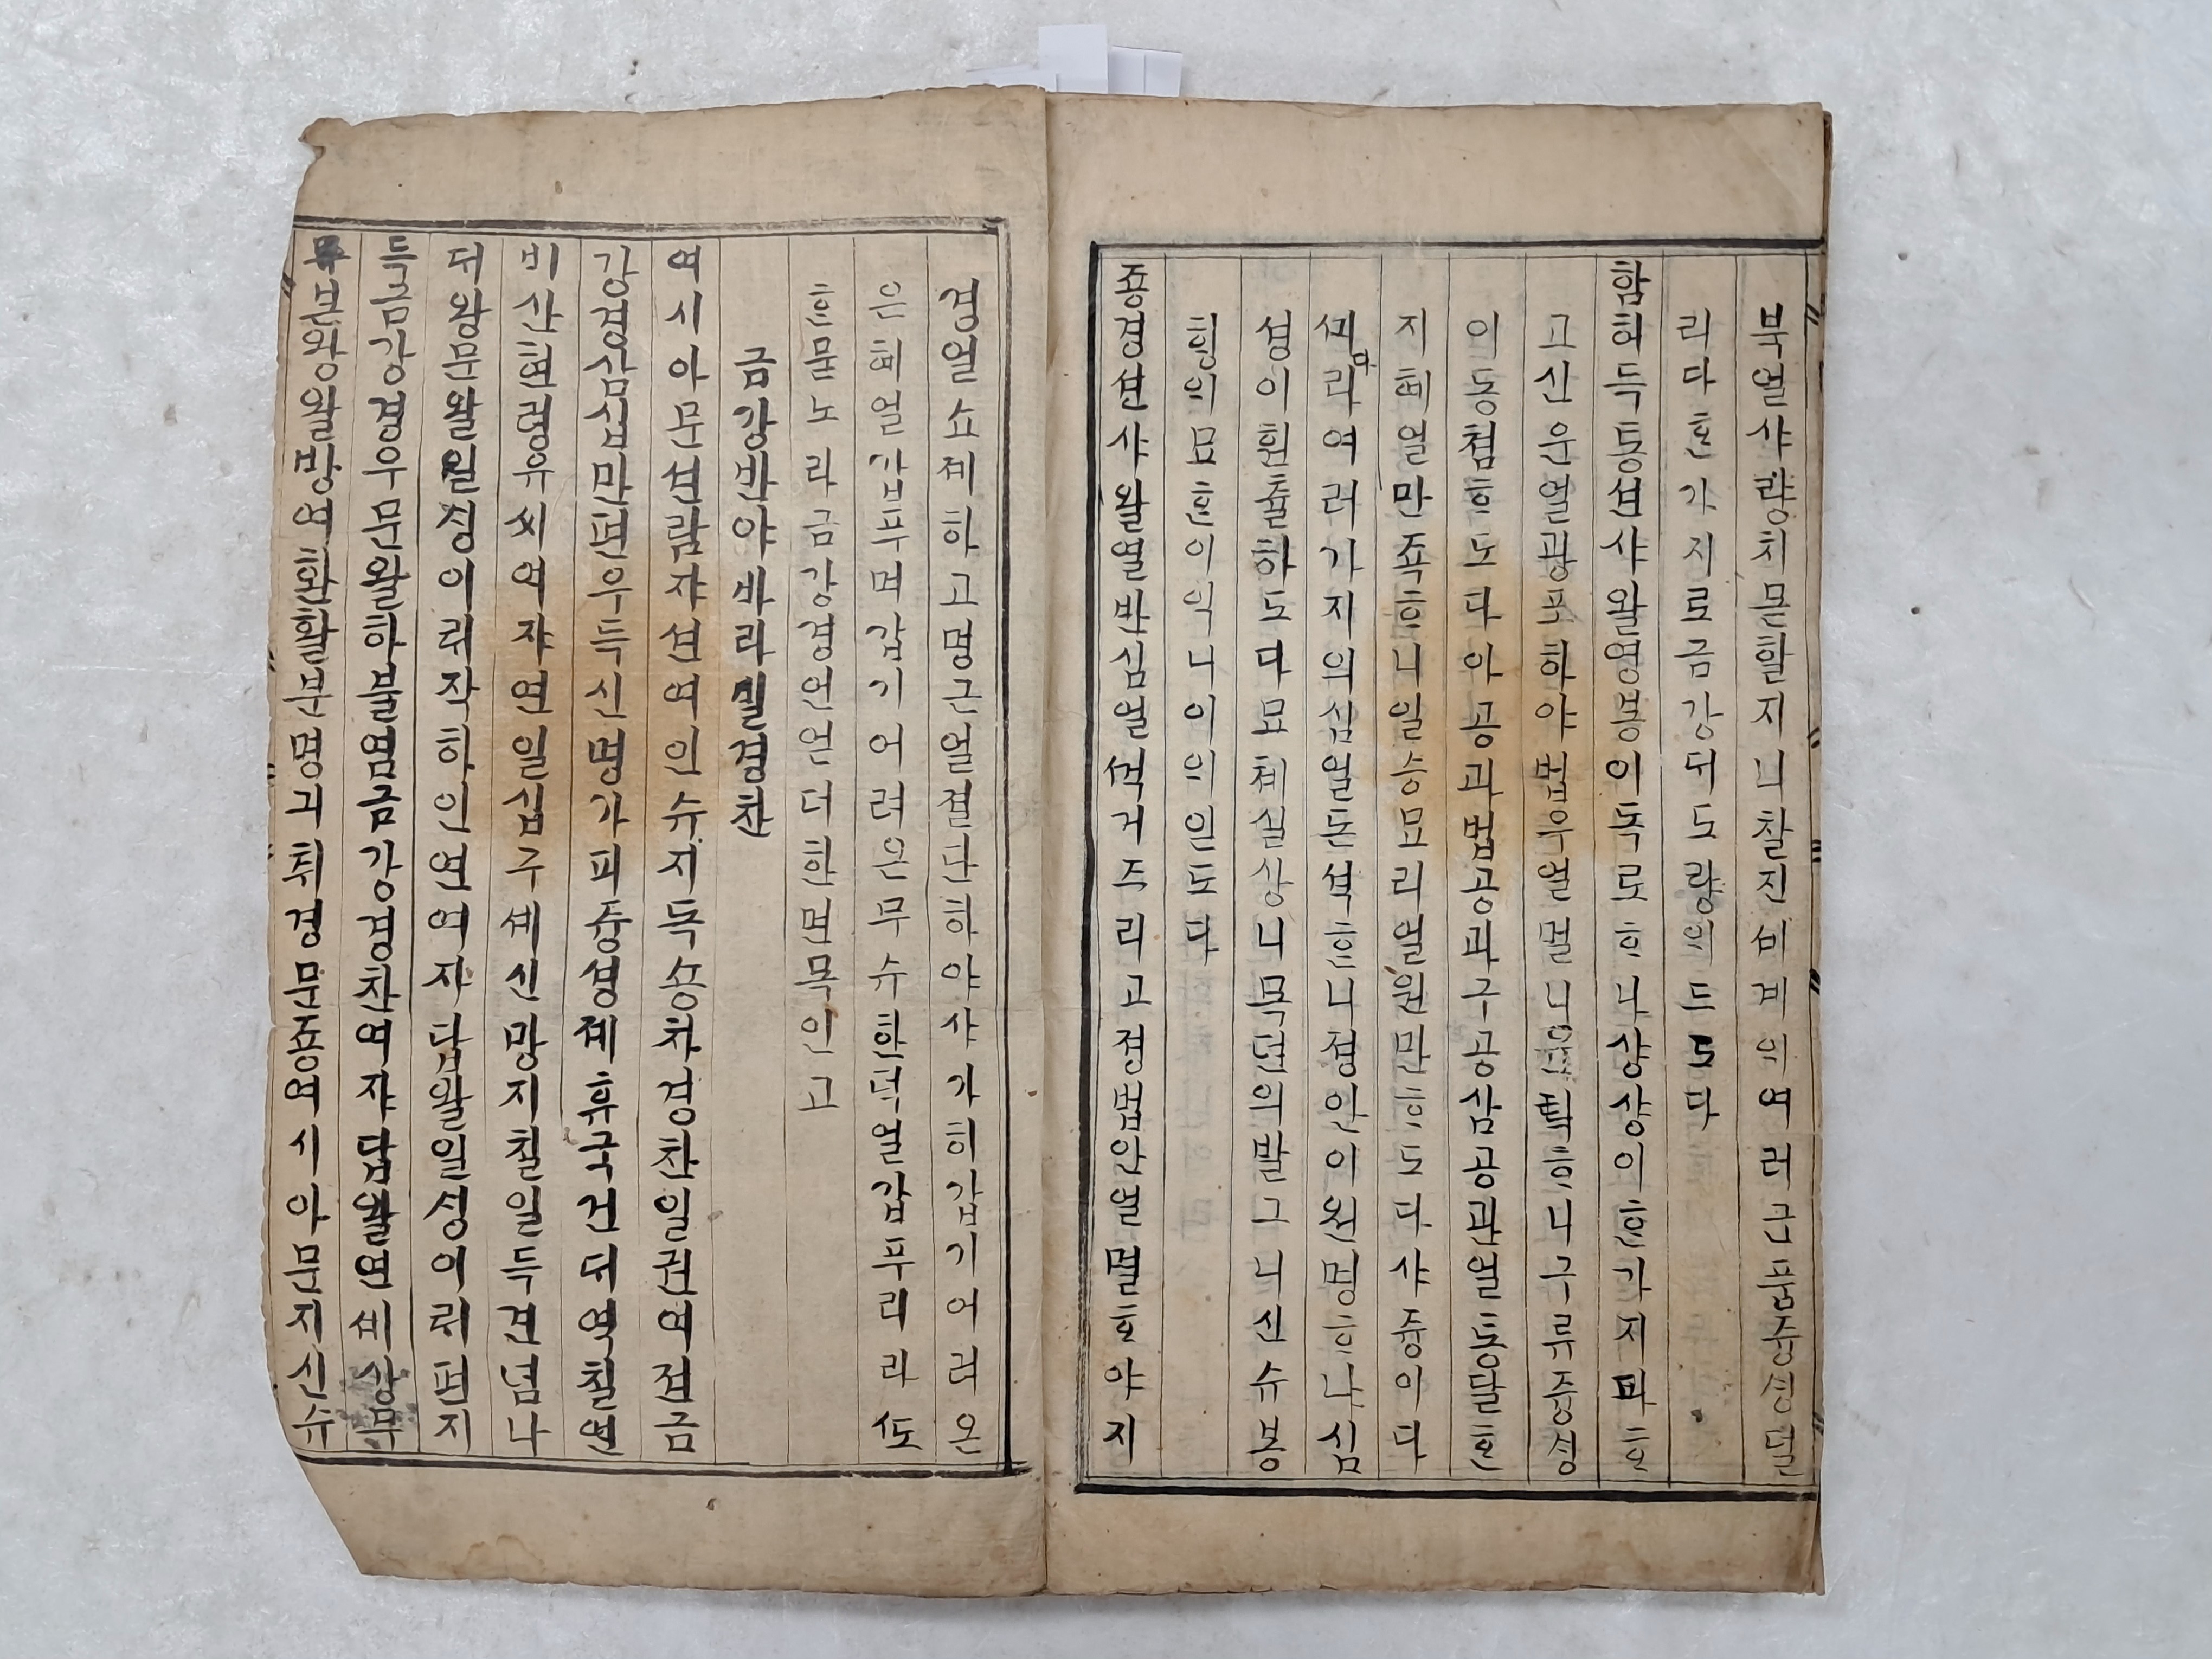 북얼샤량치믄할지니찰진비계의여러근품즁셩덜
리다ᄒᆞᆫ가지로금강ᄃᆡ도량의드도다
함ᄒᆡ득통션샤왈영봉이독로ᄒᆞ니샹샹이ᄒᆞᆫ가지파ᄒᆞ
고신운얼광포하야법우얼멀니윤퇵ᄒᆞ니구류즁셩
이동쳠ᄒᆞ도다아공과법공과구공삼공관얼통달ᄒᆞ
지혜얼만죡ᄒᆞ니일승묘리얼원만ᄒᆞ도다샤즁이다
셰리마여러가지의심얼돈셕ᄒᆞ니졍안이원명ᄒᆞ나심
셩이훤츌하도다묘쳬실상니목뎐의말그니신슈봉
ᄒᆡᆼ의묘ᄒᆞᆫ이익니이의인도다
죵경션샤왈열반심얼셕거주리고졍법안열멸ᄒᆞ야지
경얼쇼졔하고명근얼졀단하야샤가히갑기어려온
은혜얼갑푸며갑기어려은무슈한덕얼갑푸리라ᄯᅩ
ᄒᆞᆫ묻노라금강경언언더한면목인고
금강반야바라밀경찬
여시아문션람쟈션여인슈지독숑차경찬일권여졉금
강경삼십만편우득신명가피즁셩졔휴국건ᄃᆡ역칠연
비산현령유씨여쟈연일십구셰신망지칠일득견념나
ᄃᆡ왕문왈일싱이ᄅᆡ작하인연여쟈답왈일싱이ᄅᆡ편지
득금강경우문왈하불염금강경찬여쟈답왈연셰상무
본왕왈방여환활분명긔취경문죵여시아문지신슈